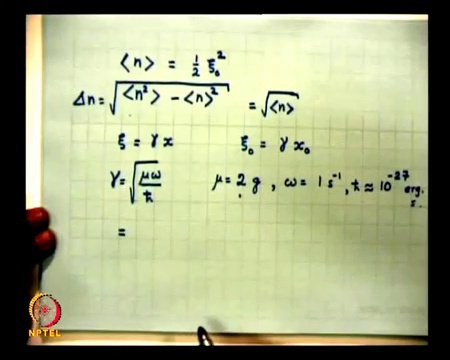 ⟨n⟩ = 1/2 ξ₀²
Δn = √(⟨n²⟩ − ⟨n⟩²) = √⟨n⟩
ξ = γ x    ξ₀ = γ x₀
γ = √(μω/ℏ)    μ = 2 g , ω = 1 s⁻¹ , ℏ ≈ 10⁻²⁷ erg. s.
=
NPTEL